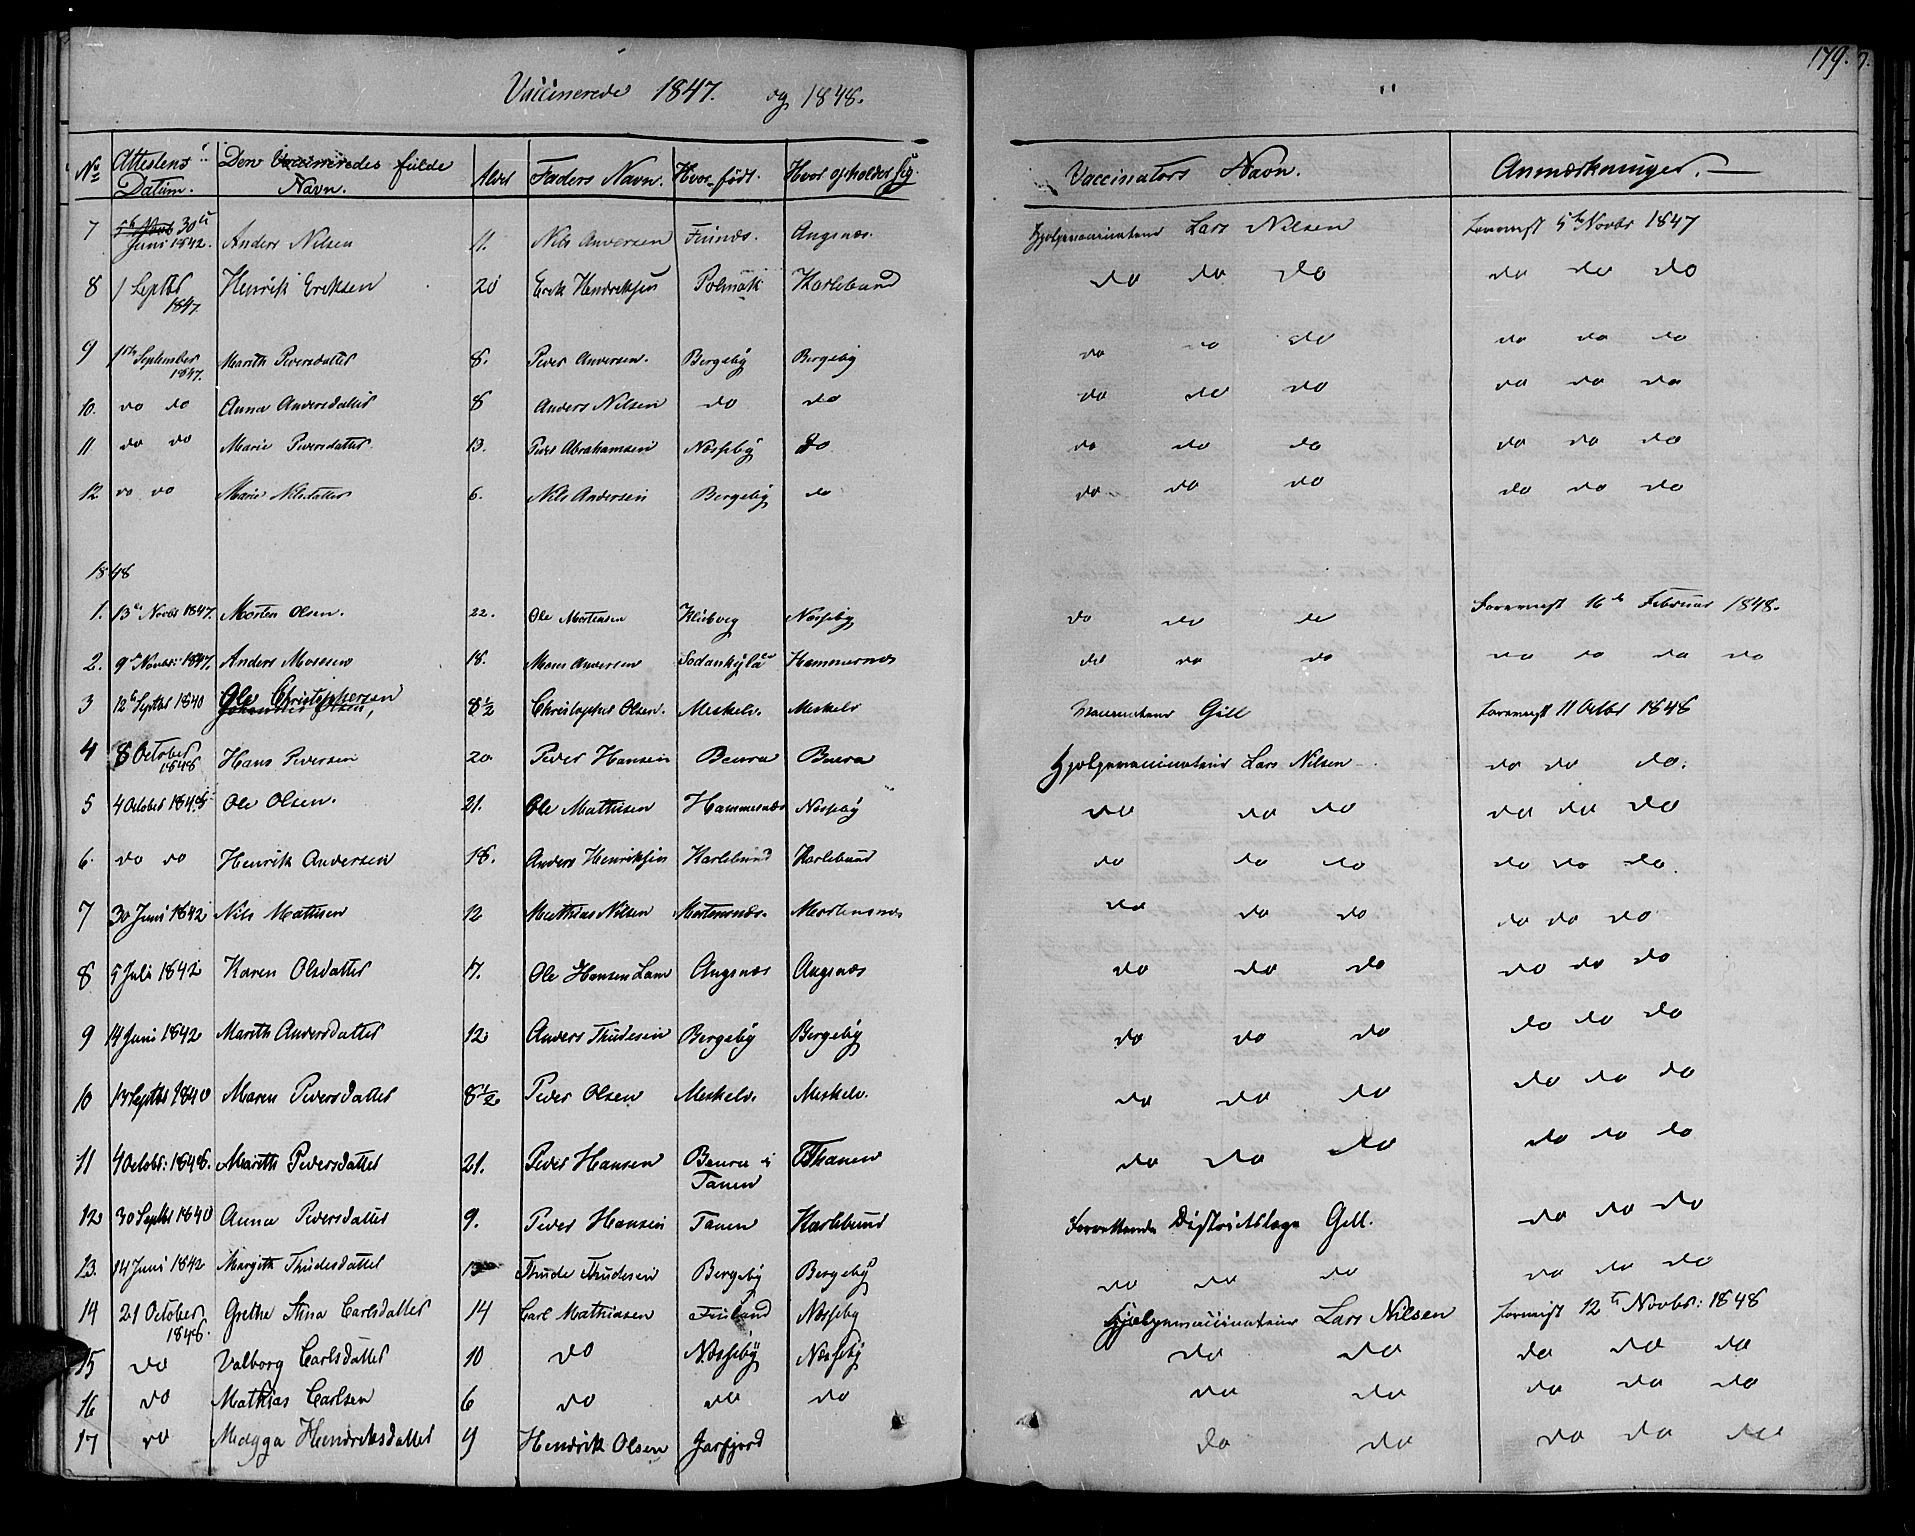 179.
Vaccinerede 1847. og 1848.
No Attestens Datum. Den Vaccineredes fulde Navn. Alder Faders Navn. Hvor født. Hvor opholder sig. Vaccinators Navn. Anmærkninger.
7 30te Juni 1842. Anders Nilsen 11. Nils Andersen Angsnæs. Hjelpevaccinateur Lars Nilsen 5te Novbr 1847
8 1 Septbr 1847. Henrik Eriksen 20 Erik Hendriksen Polmak Karlebund do do do do do do
9 1ste September 1847. Marith Pedersdatter 8. Peder Andersen. Bergeby Bergeby do do do do do do
10. do do Anna Andersdatter 8 Anders Nilsen do do do do do do do do
11 do do Marie Pedersdatter. 13. Peder Abrahamsen Næsseby do do do do do do do
12 do do Marie Nilsdatter 6. Nils Andersen Bergeby do do do do do do do
1848
1. 13de Novbr 1847. Morten Olsen. 22. Ole Mortensen Næsseby do do do 16de Februar 1848.
2. 9de Novbr: 1847. Anders Mosesen 18. Moses Andersen Sodankylä Hammernæs do do do do do do do
3 12te Septbr 1840 Ole Christophersen 8½ Christopher Olsen. Meskelv. Meskelv Vaccinateur Gill 11 Octbr 1848
4 8 October 1848 Hans Pedersen 20 Peder Hansen Beura Beura Hjelpevaccinateur Lars Nilsen do do do.
5 4 October 1848 Ole Olsen. 21. Ole Mathisen Hammernæs Næsseby do do do do do do
6. do do Henrik Andersen 18. Anders Henriksen Karlebund Karlebund do do do do do do.
7 30 Juni 1842 Nils Mathisen 12 Mathias Nilsen Mortensnæs. Mortensnæs do do do do do do
8 5 Juli 1842 Karen Olsdatter 17. Ole Hansen Angsnæs Angsnæs do do do do do do
9 14 Juni 1842 Marith Andersdatter 12 Anders Thudesen Bergeby Bergeby do do do do do do
10 13 Septbr 1840 Maren Pedersdatter 8½ Peder Olsen Meskelv. Meskelv. do do do do do do
11 4 Octobr: 1848. Marith Pedersdatter 21. Peder Hansen Beura i Tanen Thanen do do do do do do
12 30 Septbr 1840 Anna Pedersdatter 9. Peder Hansen Tanen Karlebund Districtslæge Gill. do do do
13. 14 Juni 1842 Margith Thudesdatter 13 Thude Thudesen Bergeby Bergeby do do do do do do
14 21 October 1848. Grethe Stina Carlsdatter 14 Carl Mathiasen Finland Næsseby Hjelpevaccinateur Lars Nilsen 12te Novbr: 1848
15 do Valborg Carlsdatter 10 do Næsseby Næsseby do do do do do
16 do Mathias Carlsen 6 do do do do do do do do
17 do Magga Hendriksdatter 9 Hendrik Olsen Jarfjord do do do do do